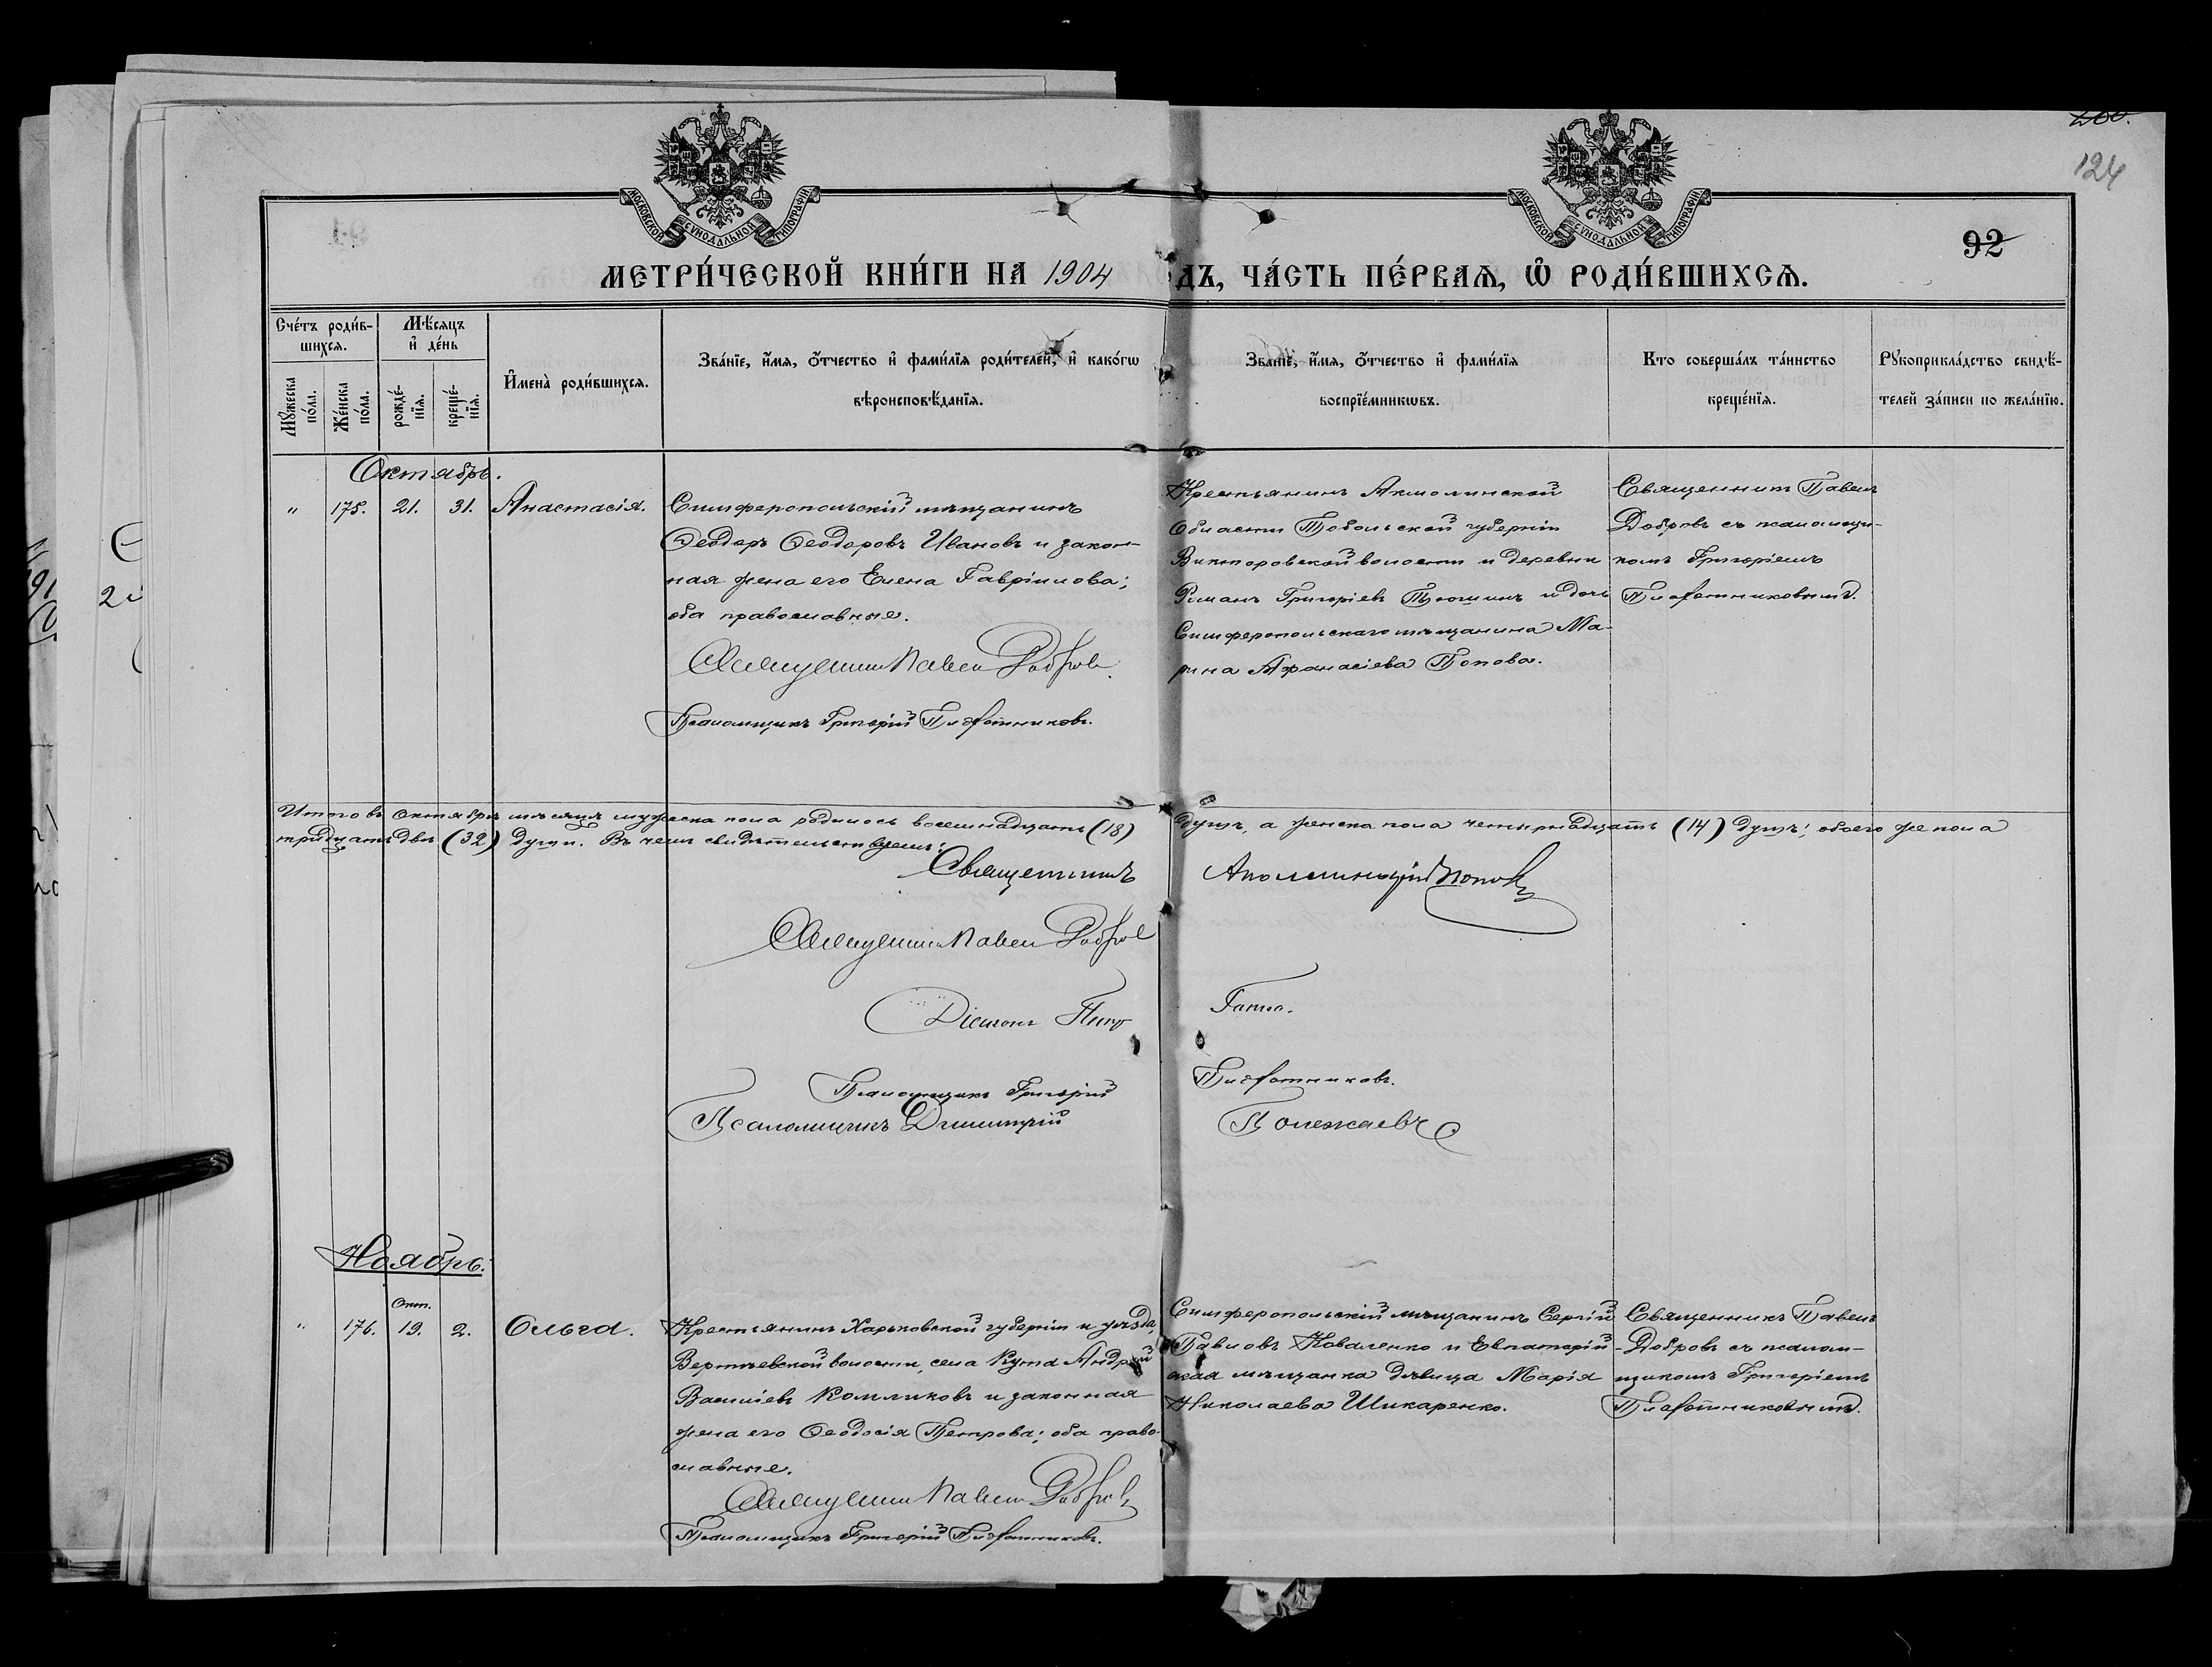 124
92
МОСКОВСКОЙ СУНОДАЛЬНОЙ ТИПОГРАФІИ
МОСКОВСКОЙ СУНОДАЛЬНОЙ ТИПОГРАФІИ
МЕТРИ́ЧЕСКОЙ КНИ́ГИ НА 1904 ДЪ, ЧА́СТЬ ПЕ́РВАѦ, Ѡ҆ РОДИ́ВШИХСѦ.
Сче́тъ роди́в-
шихсѧ.
Мꙋ́жеска по́ла.
Же́нска по́ла.
Мѣ́сѧцъ
и҆ де́нь
рожде́-
нїѧ.
креще́-
нїѧ.
И҆мена̀ роди́вшихсѧ.
Зва́нїе, и҆́мѧ, ѻ҆́тчество и҆ фами́лїѧ роди́телей, и҆ како́гѡ
вѣроисповѣ́данїѧ.
Зва́нїе, и҆́мѧ, ѻ҆́тчество и҆ фами́лїѧ
воспрїе́мникѡвъ.
Кто соверша́лъ та́инство
креще́нїѧ.
Рꙋкоприкла́дство свидѣ́-
телей за́писи по жела́нїю.
Октябрь.
" 175. 21. 31. Анастасія.
Симферопольскій мѣщанинъ
Ѳеодоръ Ѳеодоровъ Ивановъ и закон-
ная жена его Елена Гавріилова;
оба православные.
Священникъ Павелъ Добровъ
Псаломщикъ Григорій Плотниковъ.
Крестьянинъ Акмолинской
Области Тобольской губерніи
Викторовской волости и деревни
Романъ Григорьевъ и дочь
Симферопольскаго мѣщанина Ма-
рина Аѳанасіева Попова.
Священникъ Павелъ
Добровъ съ псаломщи-
комъ Григоріемъ
Плотниковымъ.
Итого въ Октябрѣ мѣсяцѣ мужеска пола родилось восемнадцать (18) душъ, а женска пола четырнадцать (14) душъ; обоего же пола
тридцать двѣ (32) души. Въ чемъ свидѣтельствуемъ:
Священникъ Аполлинарій Попов
Священникъ Павелъ Добров
Діаконъ
Псаломщикъ Григорій Плотниковъ.
Псаломщикъ Димитрій Полежаевъ
Ноябрь.
Окт.
" 176. 19. 2. Ольга.
Крестьянинъ Харьковской губерніи и уѣзда,
волости, села Кута Андрей
Василіевъ Комликовъ и законная
жена его Ѳеодосія Петрова; оба право-
славные.
Священникъ Павелъ Добровъ
Псаломщикъ Григорій Плотниковъ.
Симферопольскій мѣщанинъ Сергій
Павловъ Коваленко и Евпаторій-
ская мѣщанка дѣвица Марія
Николаева Шикаренко.
Священникъ Павелъ
Добровъ съ псалом-
щикомъ Григоріемъ
Плотниковымъ.